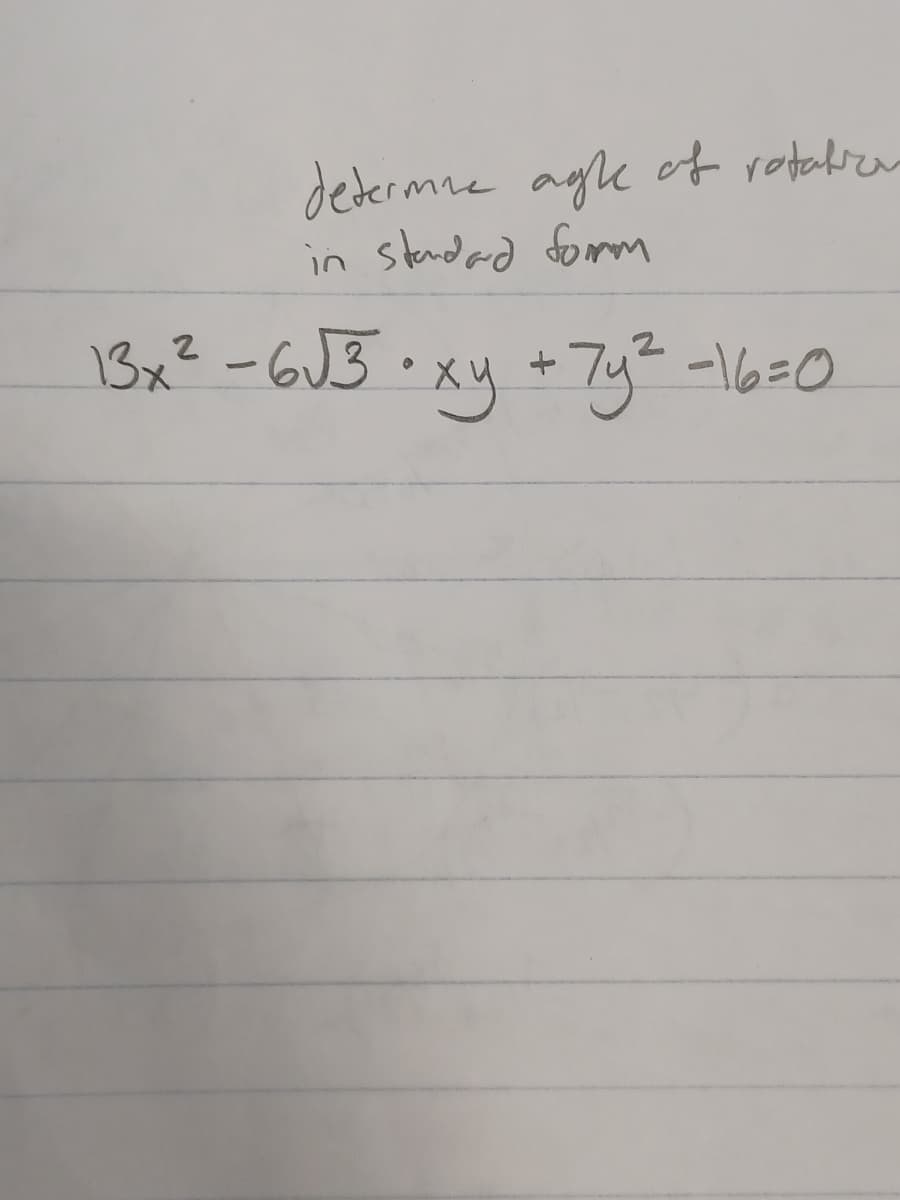 determine agle of rotation
in standard form
13x² - 6√3 · xy + 7y² - 16 = 0